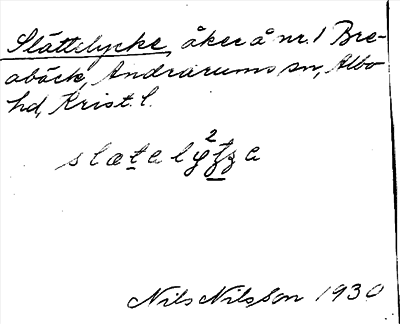 Slättelycke, åker å nr. 1 Bre-
abäck, Andrarums sn, Albo
hd, Krist. l.
Nils Nilsson 1930